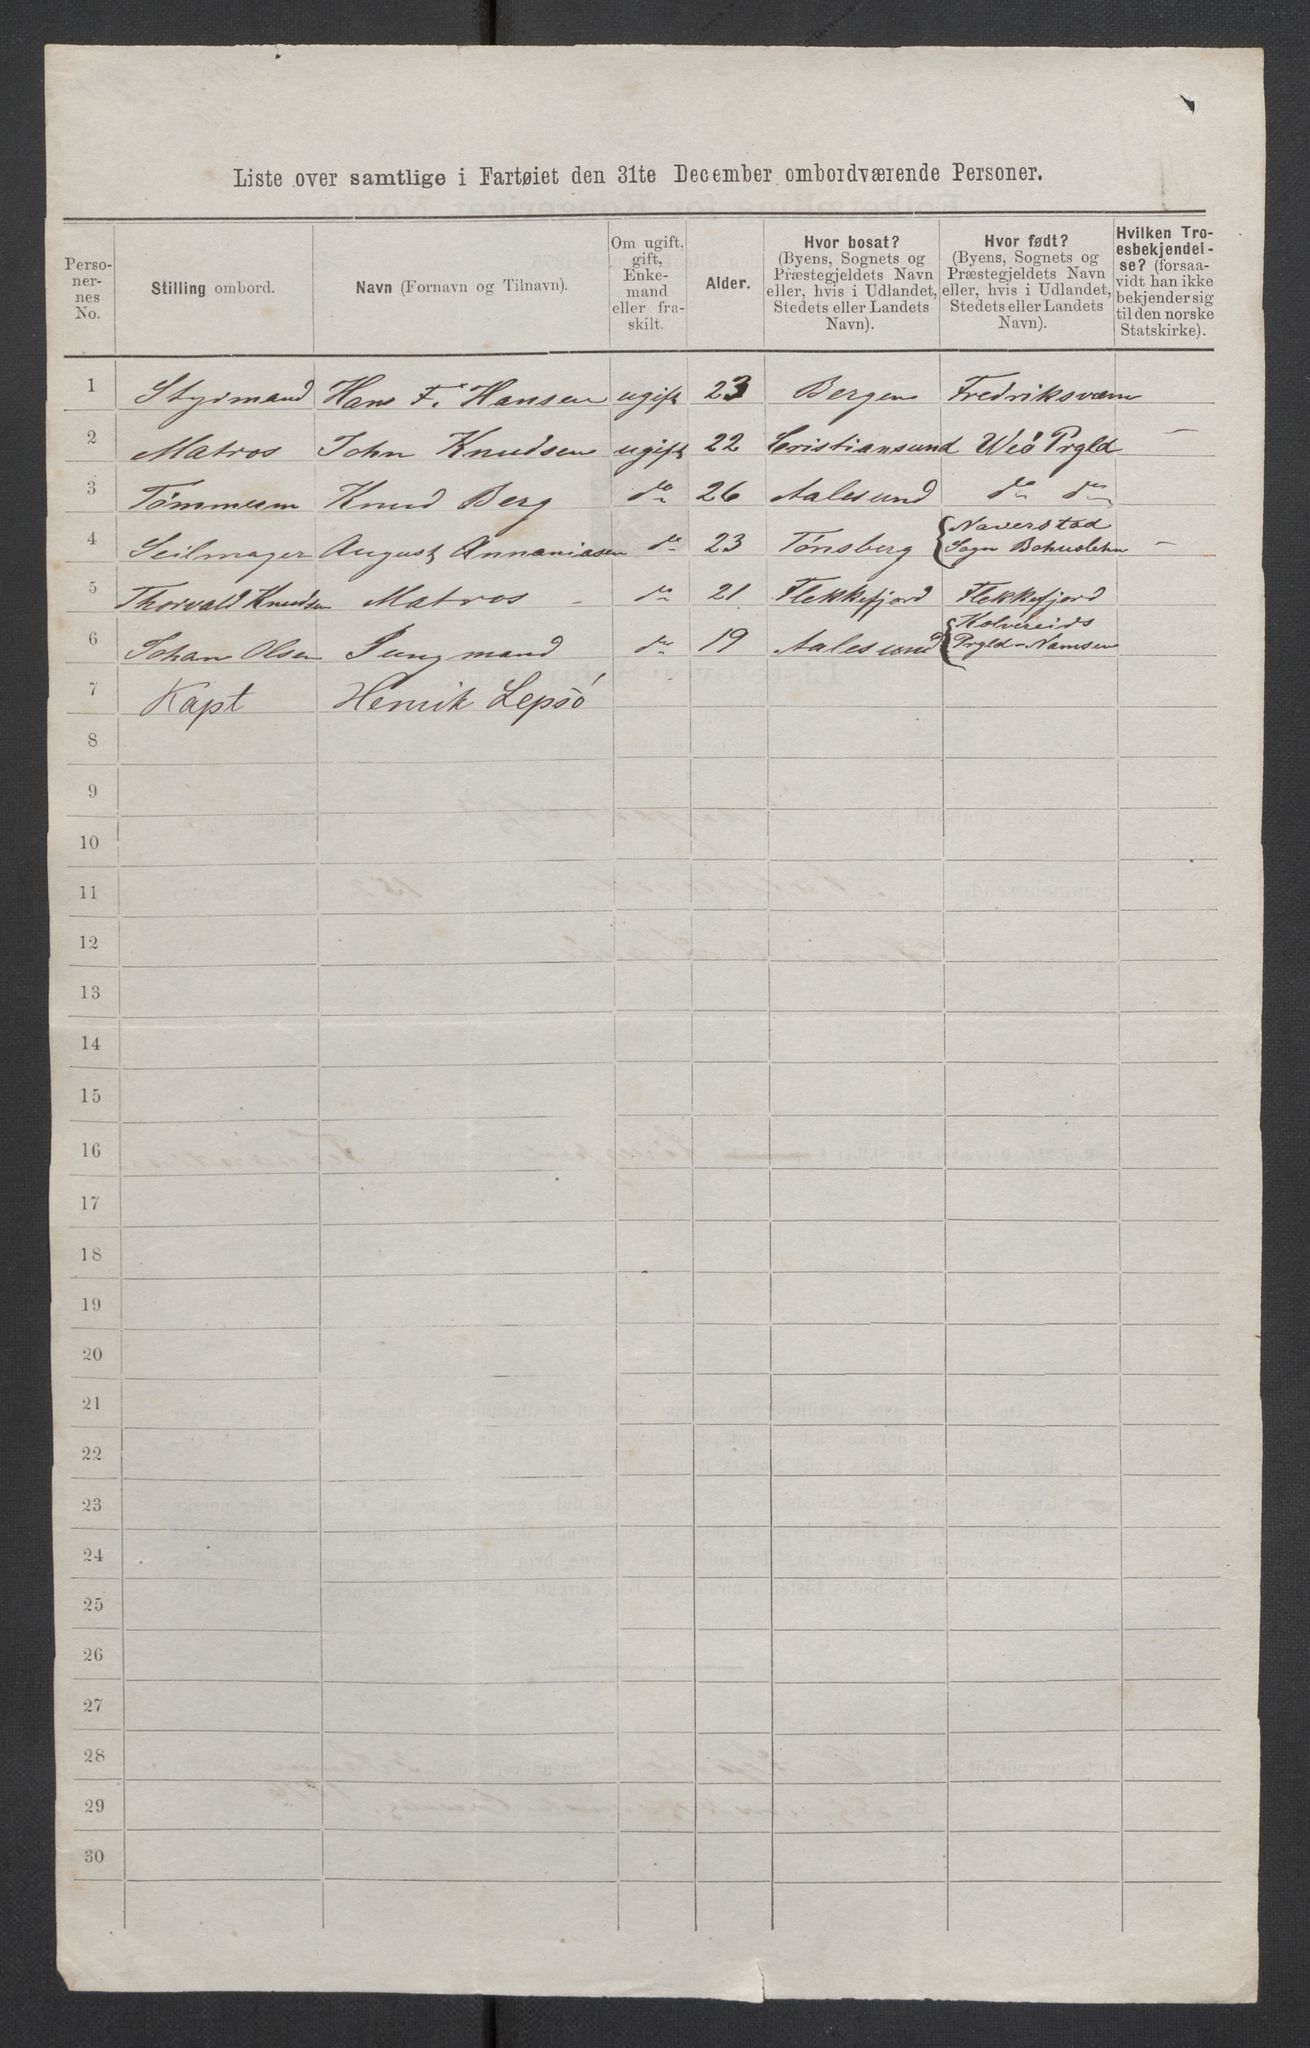 Liste over samtlige i Fartøiet den 31te December ombordværende Personer.
Perso-
ner-
nes
No.
Stilling ombord.
Navn (Fornavn og Tilnavn).
Om ugift,
gift,
Enke-
mand
eller fra-
skilt.
Alder.
Hvor bosat?
(Byens, Sognets og
Præstegjeldets Navn
eller, hvis i Udlandet,
Stedets eller Landets
Navn).
Hvor født?
(Byens, Sognets og
Præstegjeldets Navn
eller, hvis i Udlandet,
Stedets eller Landets
Navn).
Hvilken Tro-
esbekjendel-
se? (forsaa-
vidt han ikke
bekjender sig
til den norske
Statskirke).
1 Styrmand Hans F. Hansen ugift 23 Bergen Fredriksværn
2 Matros John Knudsen ugift 22 Cristiansund Weö Prgld —
3 Tömmerm Knud Berg do 26 Aalesund do do
4 Seilmager August Annaniasen do 23 Tönsberg { Naverstad
Sogn Bohuslehn —
5 Thorvald Knudsen Matros - do 21 Flekkefjord Flekkefjord
6 Johan Olsen Jungmand do 19 Aalesund { Kolvereids
Prgld - Namsen
7 Kapt Henrik Lepsö
8
9
10
11
12
13
14
15
16
17
18
19
20
21
22
23
24
25
26
27
28
29
30